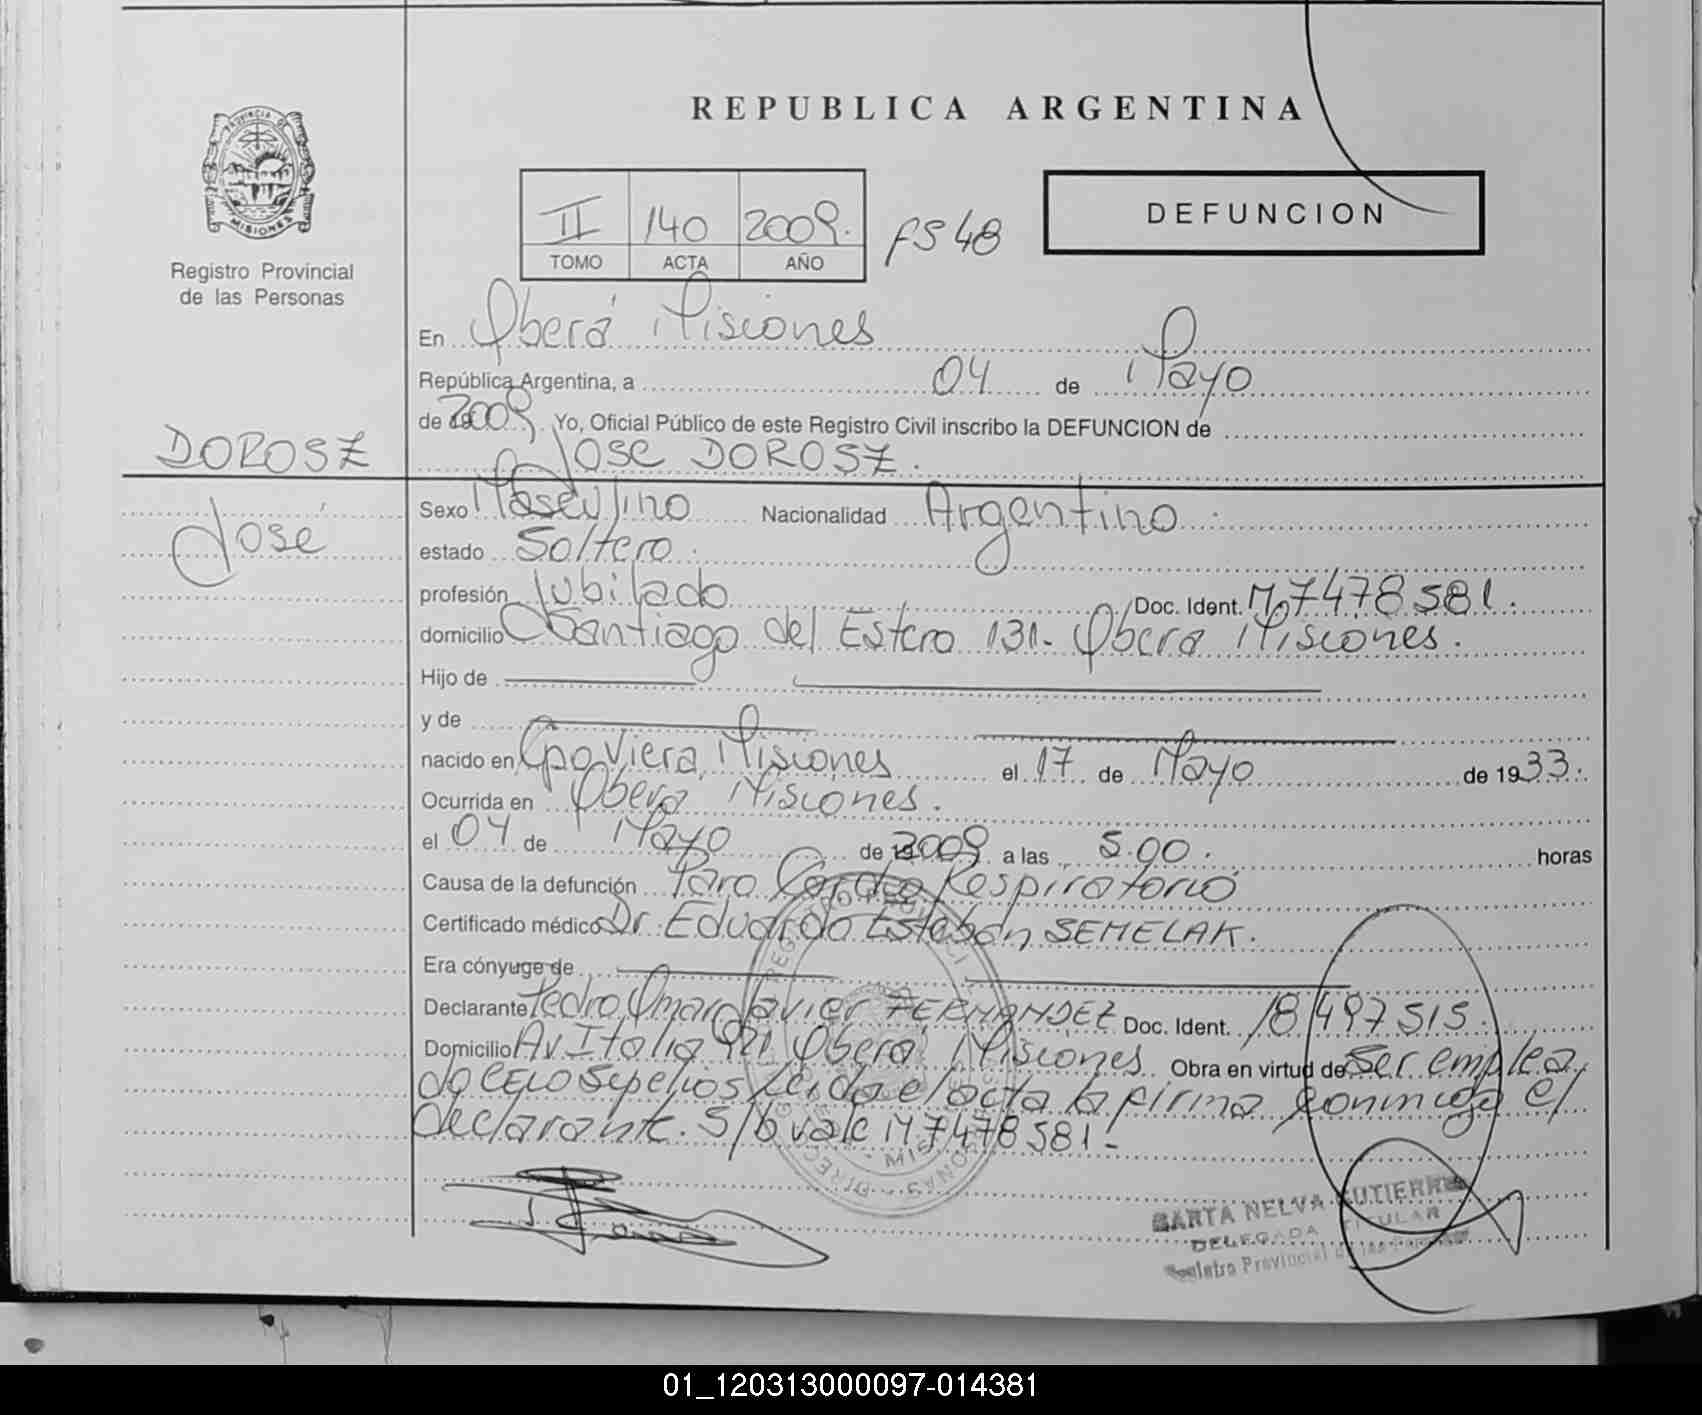 REPUBLICA ARGENTINA
PROVINCIA DE
MISIONES
Registro Provincial
de las Personas
II 140 2009. FS 48
TOMO ACTA AÑO
DEFUNCION
En Oberá Misiones
República Argentina, a 04 de Mayo
de 2009. Yo, Oficial Público de este Registro Civil inscribo la DEFUNCION de
DOROSZ
JOSE DOROSZ.
José
Sexo Masculino Nacionalidad Argentino.
estado Soltero.
profesión Jubilado Doc. Ident. M 7478581.
domicilio Santiago del Estero 131- Oberá Misiones.
Hijo de
y de
nacido en Cpo Viera, Misiones el 17 de Mayo de 1933.
Ocurrida en Oberá Misiones.
el 04 de Mayo de 2009 a las 5.00. horas
Causa de la defunción Paro Cardio Respiratorio
Certificado médico Dr. Eduardo Esteban SEMELAK.
Era cónyuge de
Declarante Pedro Omar Javier FERNANDEZ Doc. Ident. 18497515.
Domicilio Av Italia 921 Oberá Misiones Obra en virtud de Ser emplea
do CELO Sepelios Leida el acta la firma conmigo el
declarante. S/b vale M 7478581.-
MARTA NELVA GUTIERREZ
DELEGADA TITULAR
Registro Provincial de las Personas
01_120313000097-014381